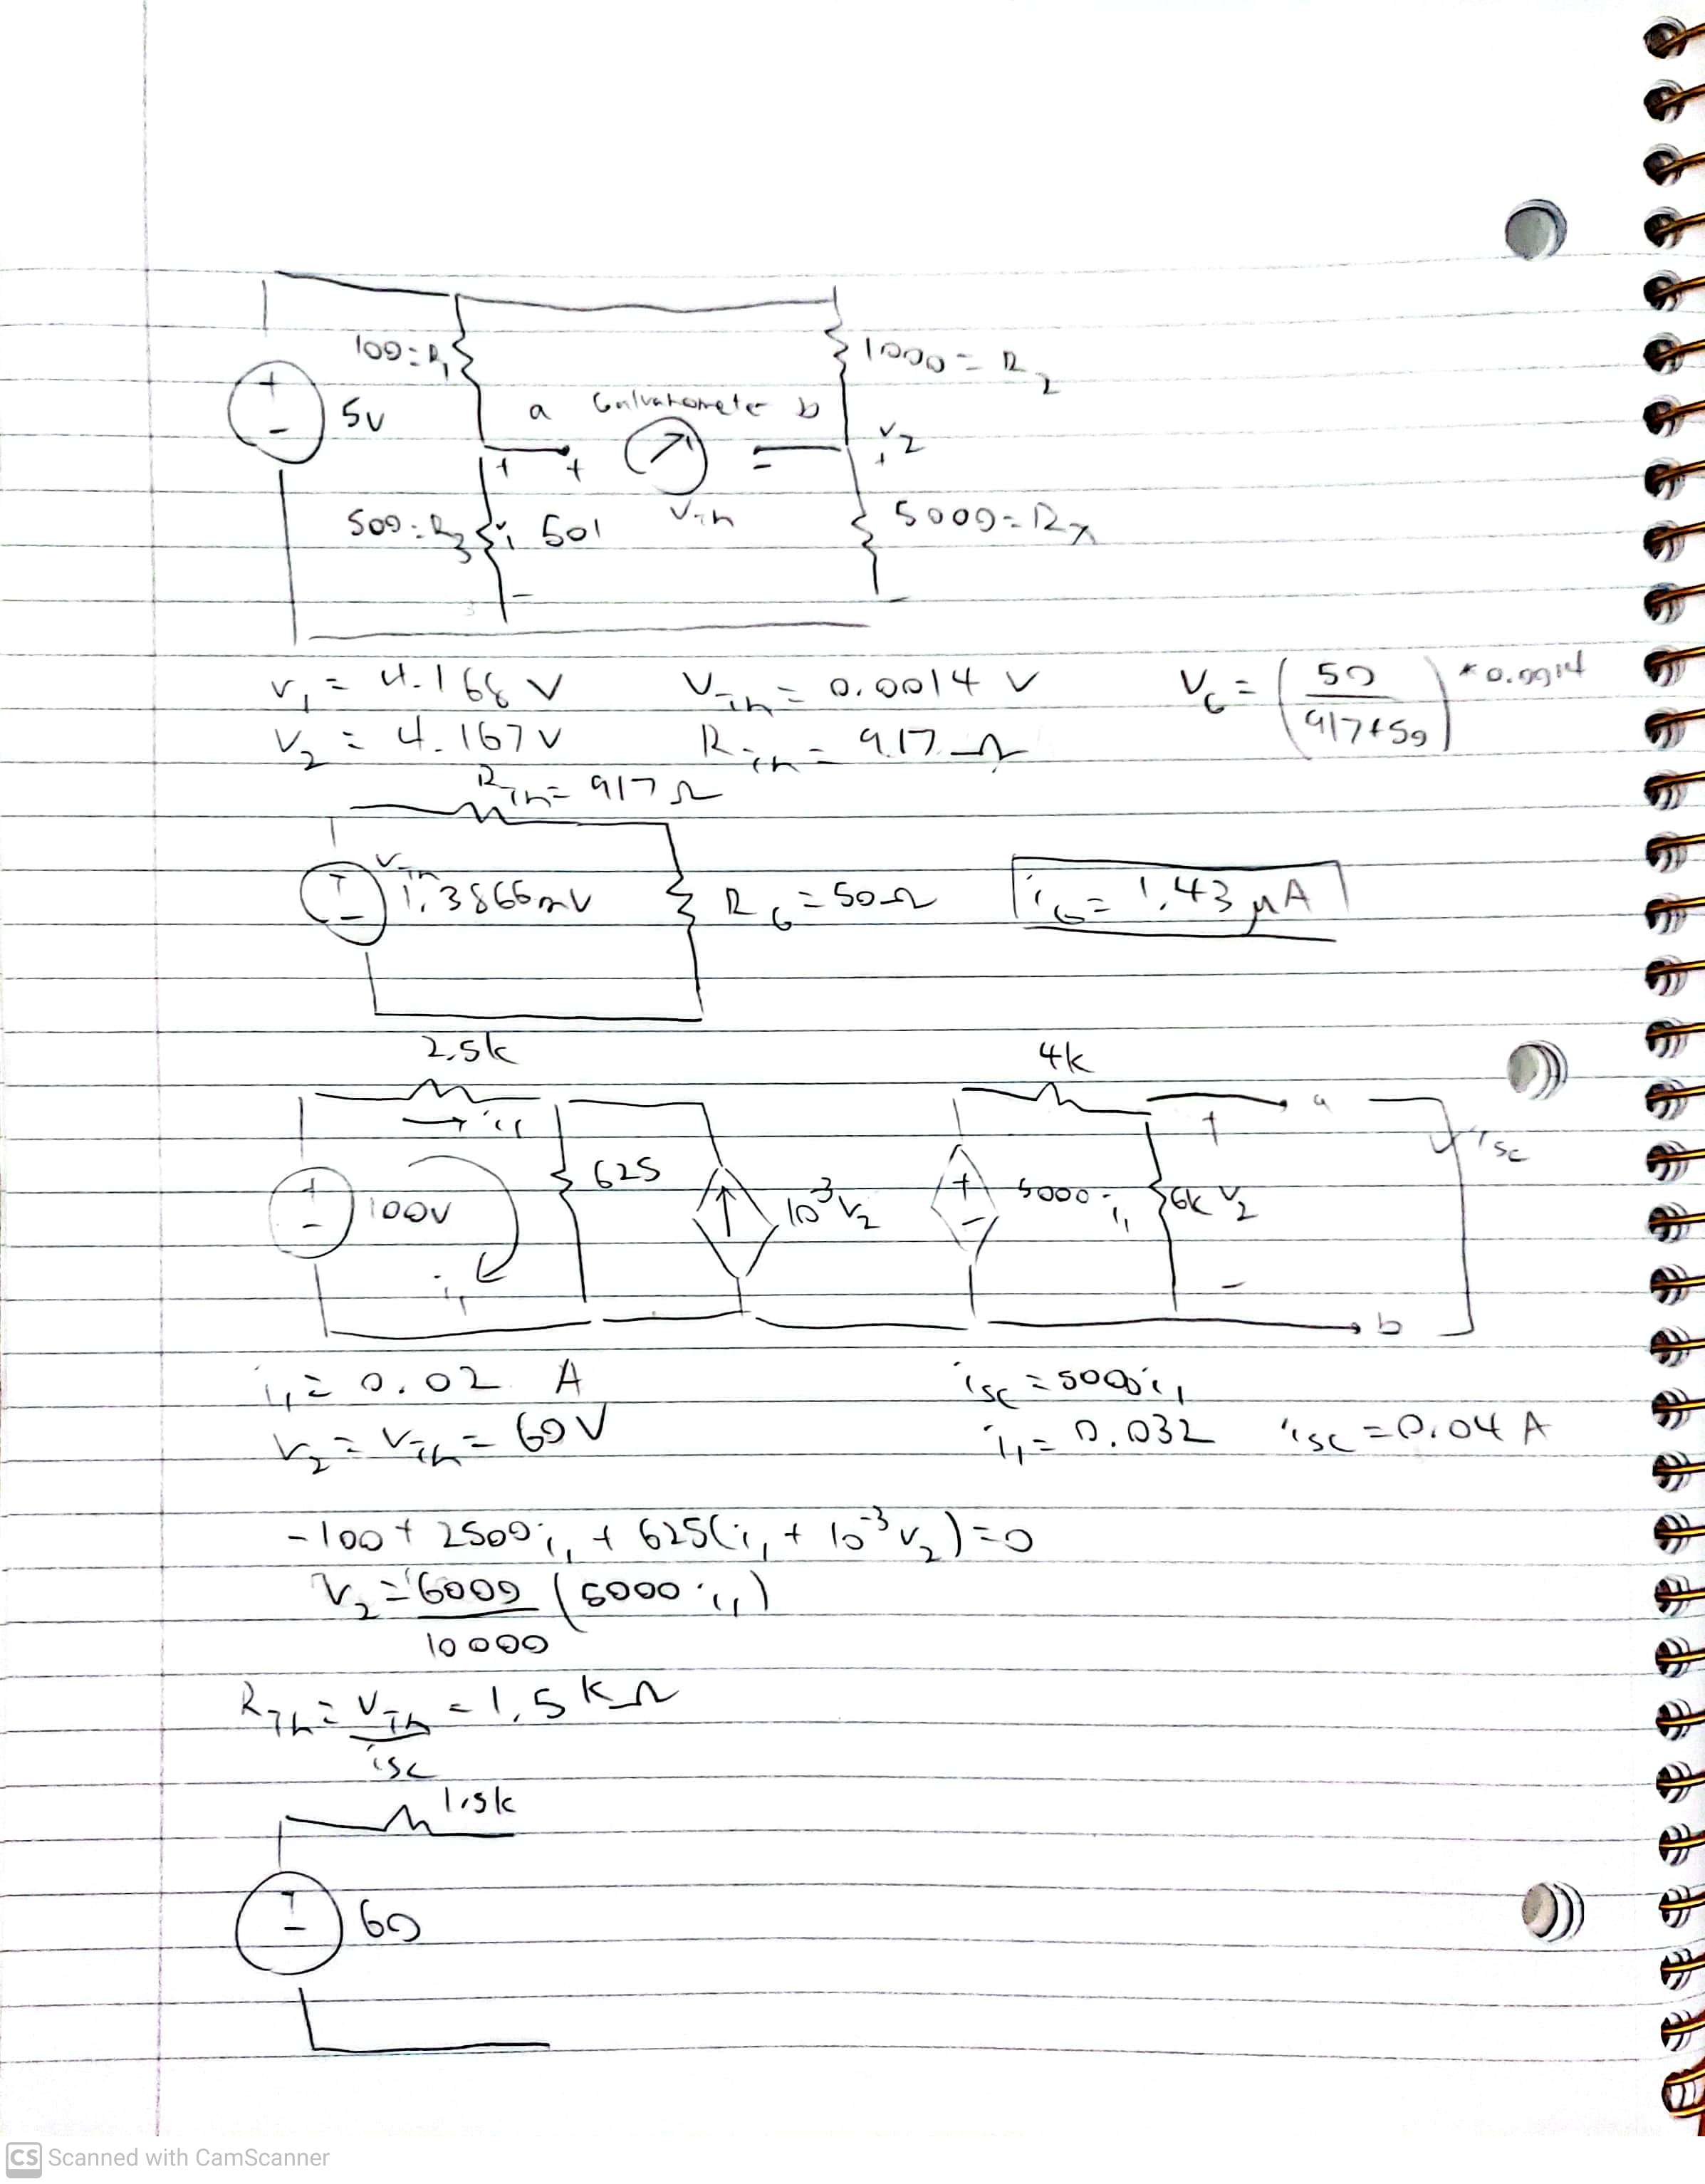 100=R₁
1000=R₂
5v
a Galvanometer b
+ + - v₂ +
500=R₃ v₁ 501 V_Th 5000=Rₓ
-
v₁ = 4.168 V V_Th = 0.0014 V V_G = (50/(917+50)) * 0.0014
v₂ = 4.167 V R_Th = 917 Ω
R_Th = 917 Ω
V_Th
1.3866mV R_G = 50 Ω i_G = 1.43 μA
2.5k 4k
→ i₁ + a i_sc
625
100V 10⁻³ v₂ 5000 i₁ 6k v₂
i₁ - b
i₁ = 0.02 A i_sc = 5000i₁
v₂ = V_Th = 60V i₁ = 0.032 i_sc = 0.04 A
-100 + 2500i₁ + 625(i₁ + 10⁻³v₂) = 0
v₂ = 6000/10000 (5000 i₁)
R_Th = V_Th/i_sc = 1.5 kΩ
1.5k
60
CS Scanned with CamScanner